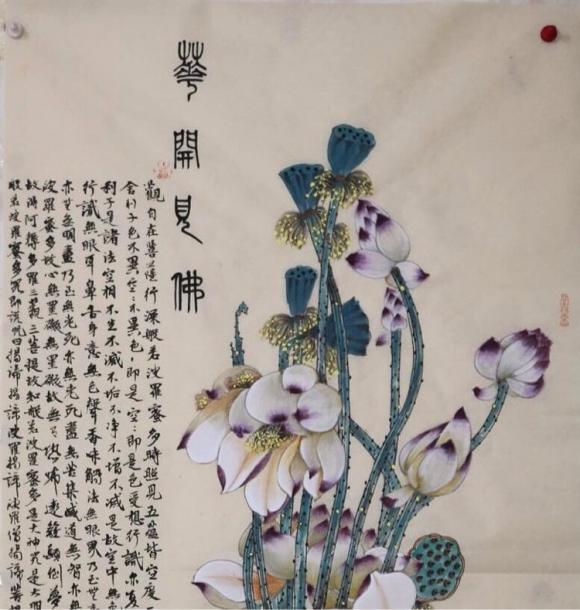 華開見佛
觀自在菩薩行深般若波羅蜜多時照見五蘊皆空度
舍利子色不異空々不異色々即是空々即是色受想行識亦复
利子是諸法空相不生不滅不垢不净不增不減是故空中無
行識無眼耳鼻舌身意無色聲香味觸法無眼界乃至無
亦無無明盡乃至無老死亦無老死盡無苦集滅道無智亦無
波羅蜜多故心無罣礙無罣礙故無有恐怖遠離顛倒夢
故得阿耨多羅三藐三菩提故知般若波羅蜜多是大神咒是大明
般若波羅蜜多咒即說咒曰揭諦揭諦波羅揭諦波羅僧揭諦菩提